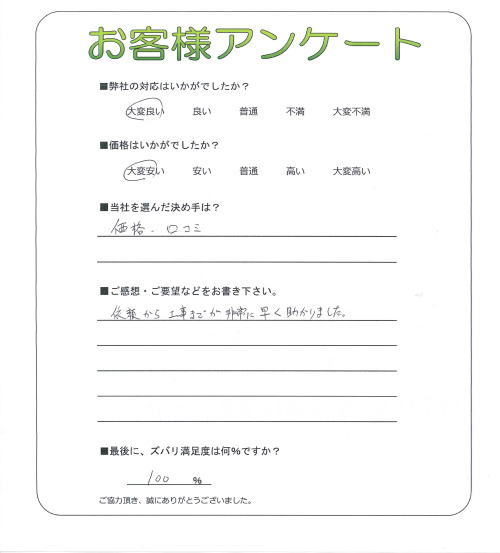 お客様アンケート
■弊社の対応はいかがでしたか？
大変良い 良い 普通 不満 大変不満
■価格はいかがでしたか？
大変安い 安い 普通 高い 大変高い
■当社を選んだ決め手は？
価格、口コミ
■ご感想・ご要望などをお書き下さい。
依頼から工事までが非常に早く助かりました。
■最後に、ズバリ満足度は何%ですか？
100 %
ご協力頂き、誠にありがとうございました。